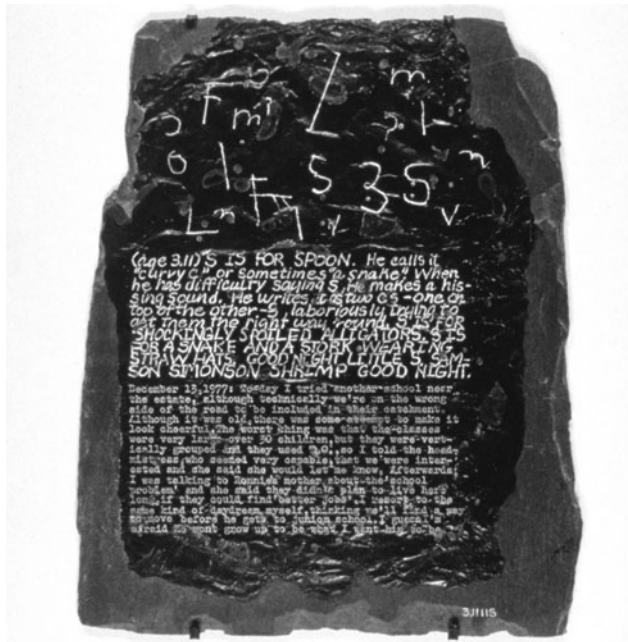 L m
F m
o S 3 5 n
L n v
(age 3.11) S IS FOR SPOON. He calls it
"curvy c" or sometimes "a snake". When
he has difficulty saying S, He makes a his-
sing sound. He writes it as two cs - one on
top of the other - S, laboriously trying to
get them the right way round. S IS FOR
SHOCKINGLY SPOILED ALLIGATORS. S IS
FOR A SNAKE AND A STORK WEARING
STRAW HATS. GOOD NIGHT LITTLE S. SAM-
SON SIMONSON SHRIMP GOOD NIGHT.
December 13, 1977: Today I tried another school near
the estate, although technically we're on the wrong
side of the road to be included in their catchment.
Although it was old, there was some attempt to make it
look cheerful. The worst thing was that the classes
were very large-over 30 children, but they were vert-
ically grouped and they used so I told the head-
mistress, who seemed very capable, that we were inter-
ested and she said she would let me know. Afterwards,
I was talking to Ronnie's mother about the 'school
problem' and she said they didn't plan to live here
long if they could find better jobs. I resort to the
same kind of daydream myself, thinking we'll find a way
to move before he gets to junior school. I guess I'm
afraid he wont grow up to be what I want him to be
3.1111S